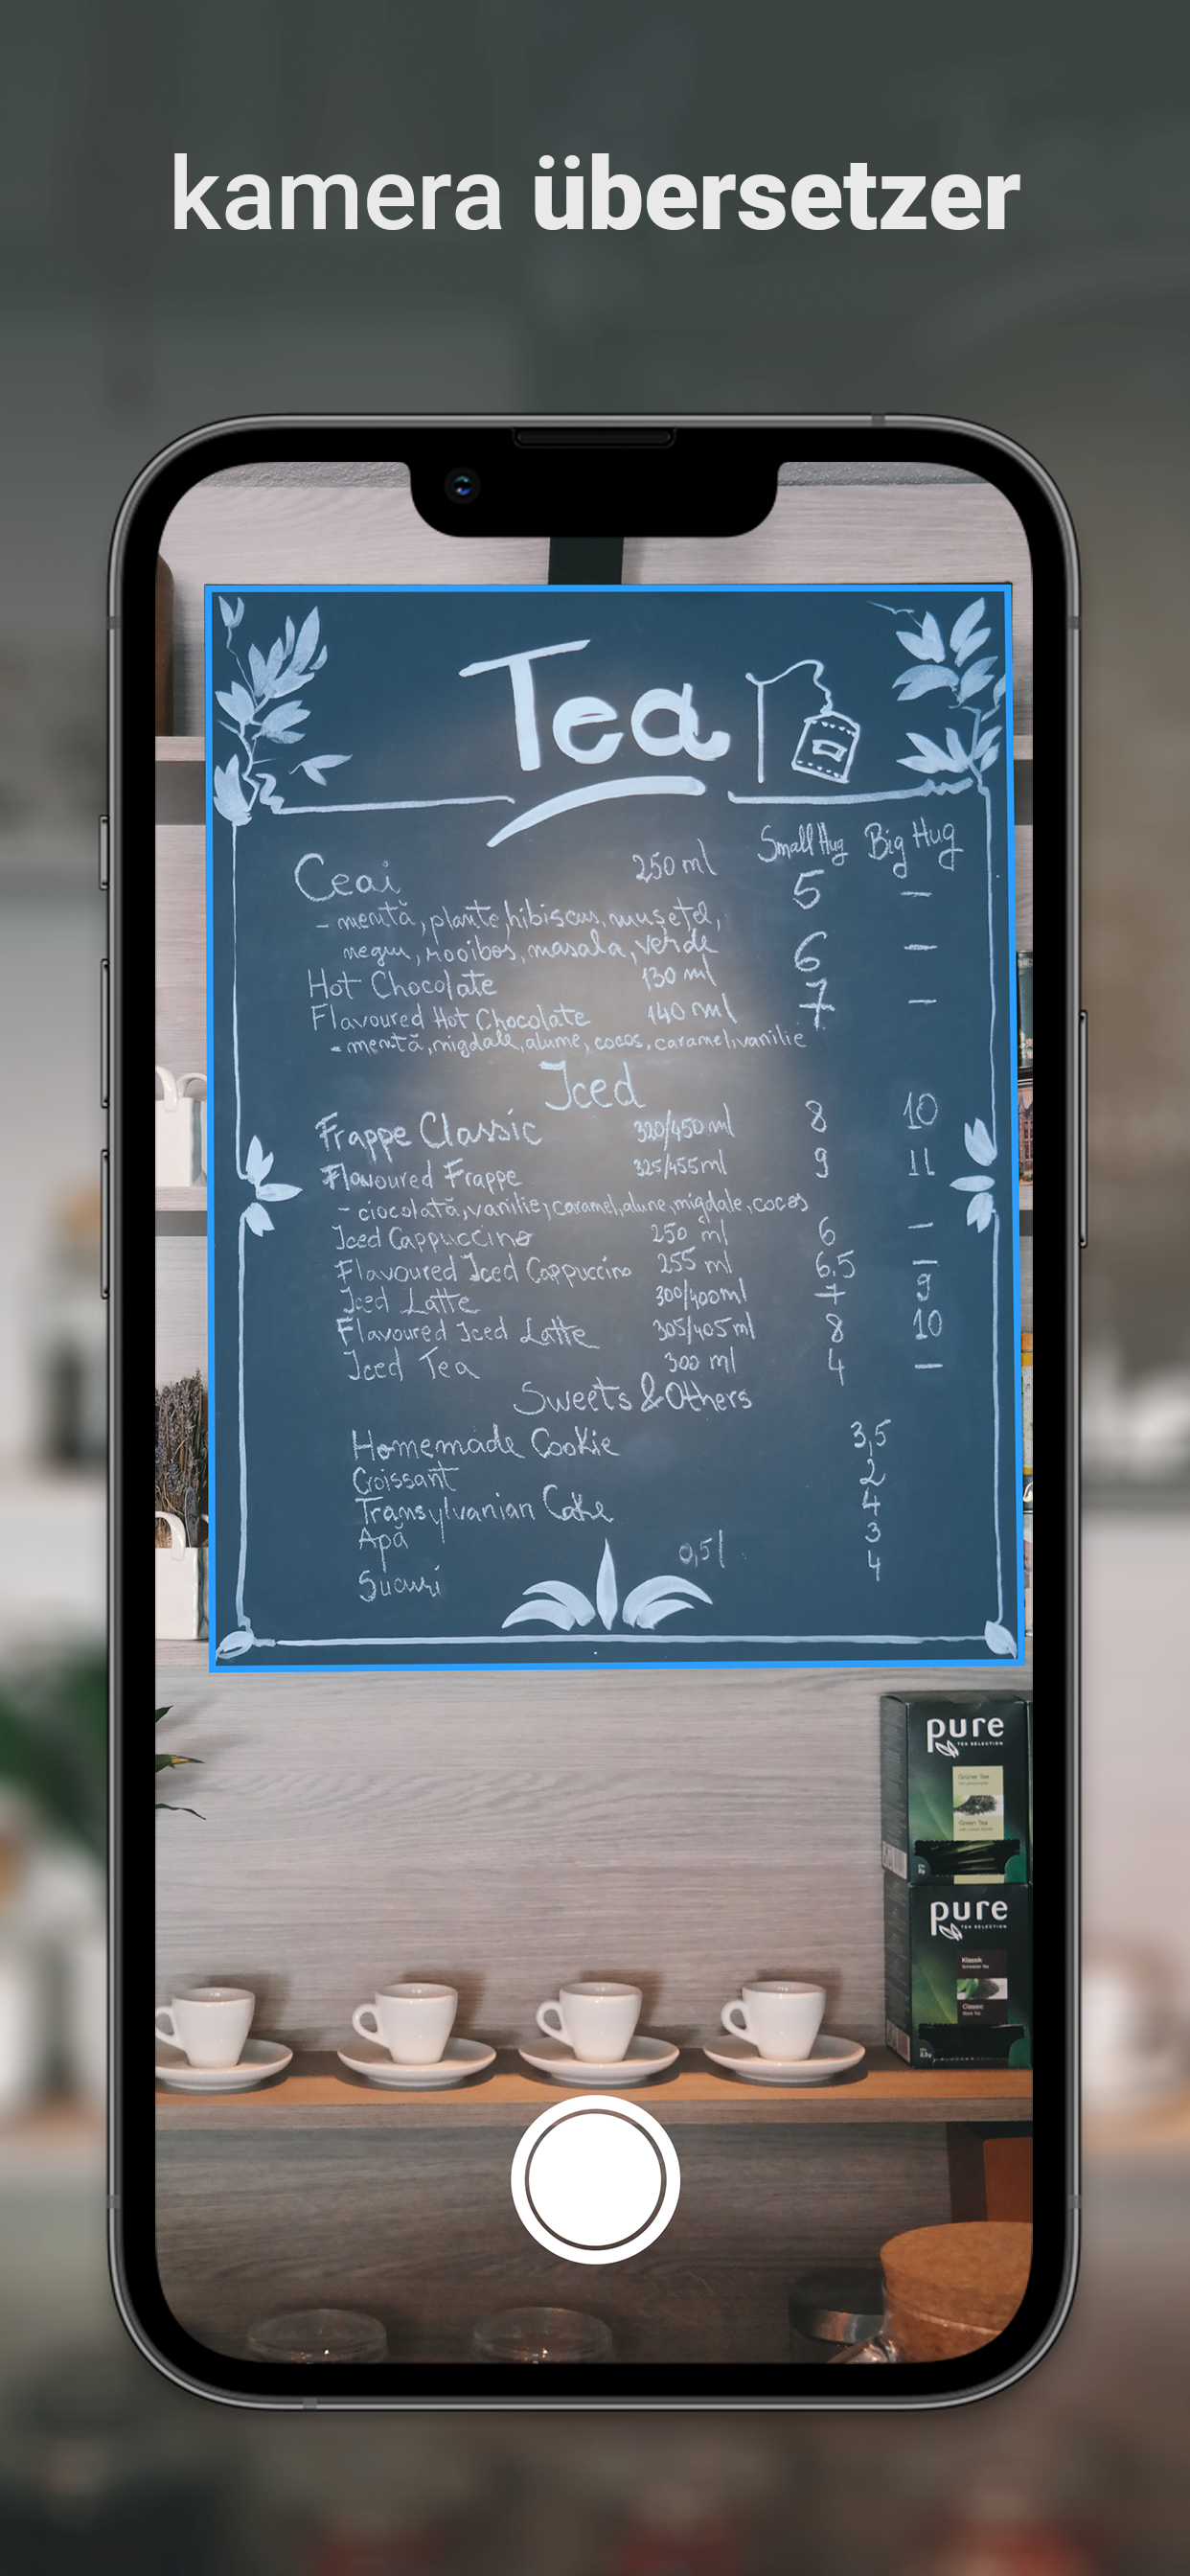 kamera übersetzer
Tea
Small Hug Big Hug
Ceai 250 ml 5 —
- mentă, plante, hibiscus, mușețel,
negru, rooibos, masala, verde
Hot Chocolate 130 ml 6 —
Flavoured Hot Chocolate 140 ml 7 —
- mentă, migdale, alune, cocos, caramel, vanilie
Iced
Frappe Classic 320/450 ml 8 10
Flavoured Frappe 325/455 ml 9 11
- ciocolată, vanilie, caramel, alune, migdale, cocos
Iced Cappuccino 250 ml 6 —
Flavoured Iced Cappuccino 255 ml 6,5 —
Iced Latte 300/400 ml 7 9
Flavoured Iced Latte 305/405 ml 8 10
Iced Tea 300 ml 4 —
Sweets & Others
Homemade Cookie 3,5
Croissant 2
Transylvanian Cake 4
Apă 3
Sucuri 0,5 l 4
pure
TEA SELECTION
Grüner Tee
Green Tee
pure
TEA SELECTION
Klassik
Schwarzer Tee
Classic
Black Tea